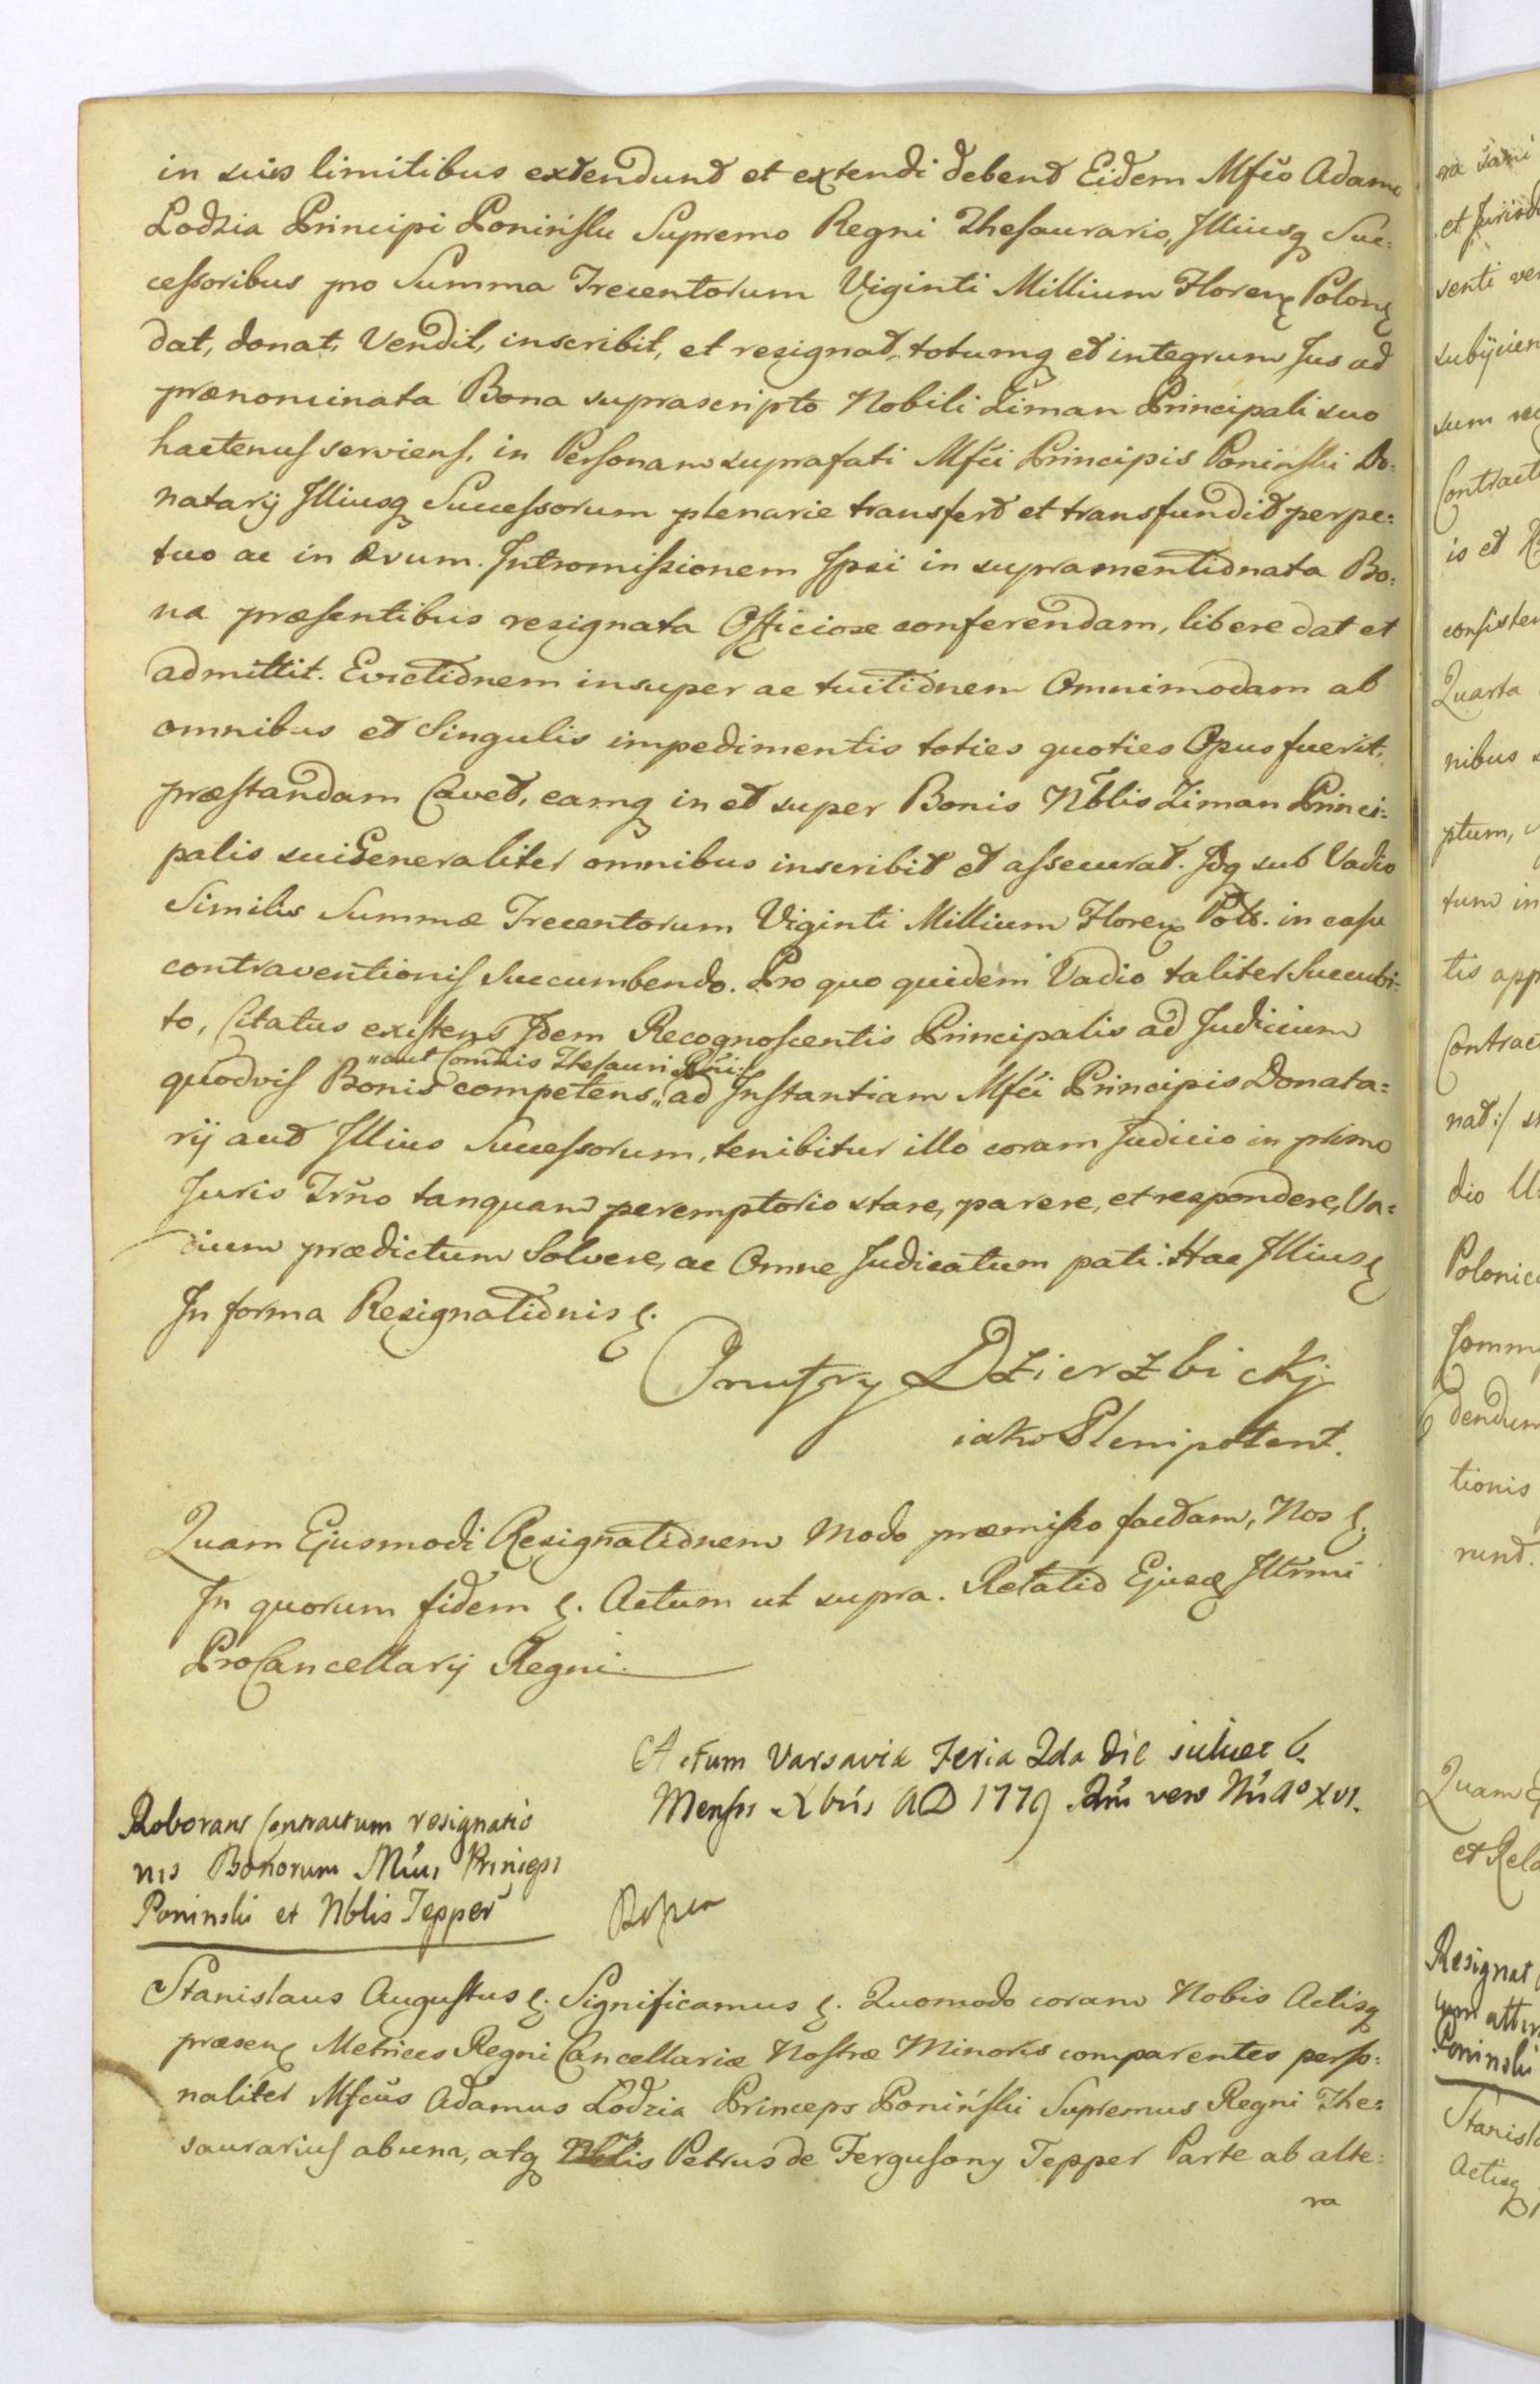 in suis limitibus extendunt et extendi debent Eidem Mfco Adamo
Lodzia Principi Poninsku Supremo Regni Thesaurario, Illiusq Suc:
cessoribus pro Summa Trecentorum Viginti Millium Floren Polon
dat, donat, Vendit, inscribit, et resignat, totumq et integrum Jus ad
prænominata Bona suprascripto Nobili Ziman Principali suo
hactenus serviens, in Personam suprafati Mfci Principis Poninski Do:
natarij Illiusq Successorum plenarie transfert et transfundit perpe:
tuo ac in ævum. Intromissionem Ipsi in supramentionata Bo:
na præsentibus resignata Officiose conferendam, libere dat et
admittit. Evictionem insuper ac tuitionem Omnimodam ab
omnibus et Singulis impedimentis toties quoties Opus fuerit,
præstandam Cavet, eamq in et super Bonis Nblis Ziman Princi:
palis sui Generaliter omnibus inscribit et assecurat. Idq sub Vadio
Similis Summæ Trecentorum Viginti Millium Floren Pols. in casu
contraventionis Succumbendo. Pro quo quidem Vadio taliter Succubi:
to, Citatus existens Idem Recognoscentis Principalis ad Judicium
"aut Commis Thesauri Rni
quodvis Bonis competens " ad Instantiam Mfci Principis Donata:
rij aut Illius Successorum, tenibitur illo coram Judicio in primo
Juris Trno tanquam peremptorio stare, parere, et respondere, Va:
dium prædictum Solvere, ac Omne Judicatum pati. Hac Illiusq
In forma Resignationis &.
Onufry Dzierzbickj
iako Plenipotent.
Quam Ejusmodi Resignationem Modo præmisso factam, Nos &.
In quorum fidem &. Actum ut supra. Relatio Ejusq Illrmi
ProCancellarij Regni.
Actum Varsaviæ Feria 2da die scilicet 6.
Mensis Xbris AD 1779 Rni vero Nri Ao XVI.
Roborans Contractum resignatio
nis Bonorum Mfici Principis
Poninski et Nblis Tepper
Stanislaus Augustus &. Significamus &. Quomodo coram Nobis Actisq
præsen Metrices Regni Cancellariæ Nostræ Minoris comparentes perso:
naliter Mfcus Adamus Lodzia Princeps Poniński Supremus Regni The:
saurarius ab una, atq Nblis Petrus de Fergusony Tepper Parte ab alte:
ra